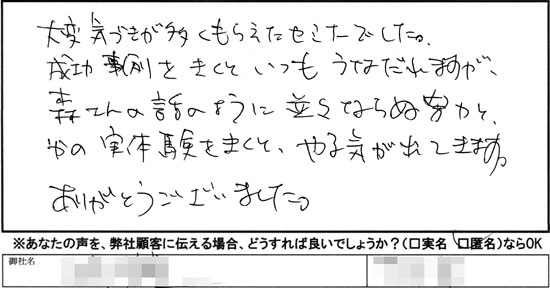 大変気づきが多くもらえたセミナーでした。
成功事例をきくと いつも うなだれますが、
森さんの話のように並々ならぬ努力と、
の実体験をきくと、やる気がれてきます。
ありがとうございました。
※あなたの声を、弊社顧客に伝える場合、どうすれば良いでしょうか?(□実名 □匿名)ならOK
御社名